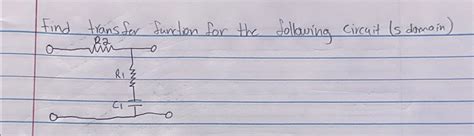 Find transfer function for the following circuit (s domain)
R2
R1
C1